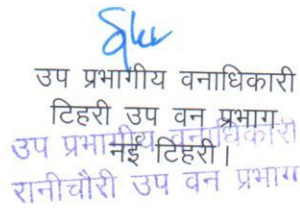 उप प्रभागीय वनाधिकारी
टिहरी उप वन प्रभाग
उप प्रभागीय वनाधिकारी
नई टिहरी।
रानीचौरी उप वन प्रभाग